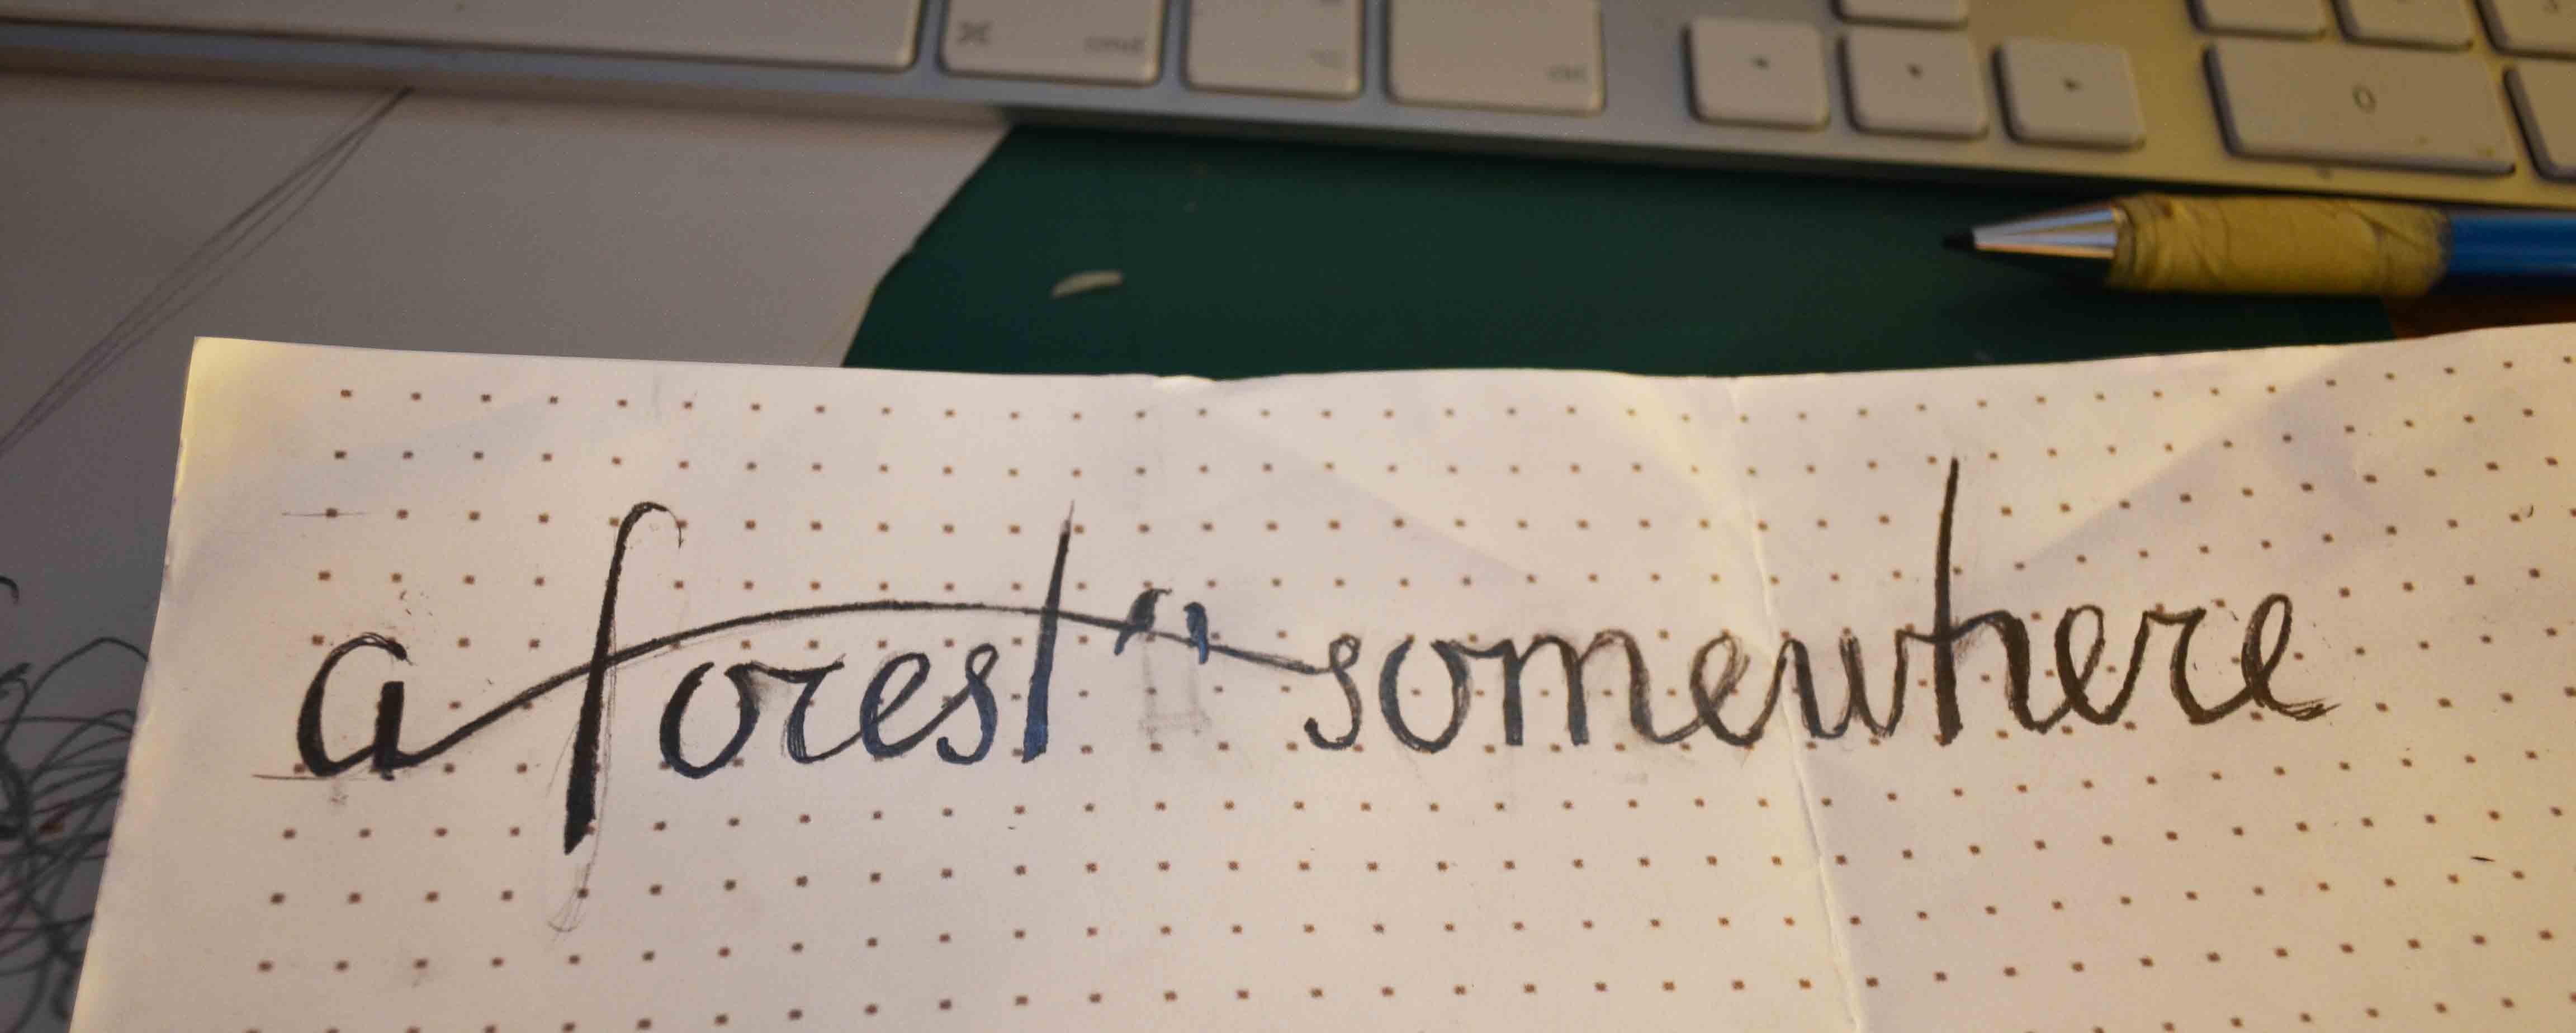 cmd
0
a forest " somewhere